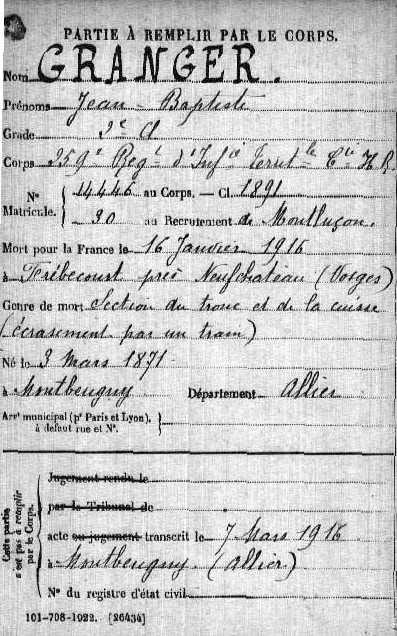 PARTIE À REMPLIR PAR LE CORPS.
Nom GRANGER.
Prénoms Jean - Baptiste
Grade 2e Cl
Corps 359e Regt d'Infie Territle Cie H R
Nos Matricule. { 14446 au Corps. — Cl. 1891
30 au Recrutement de Montluçon.
Mort pour la France le 16 Janvier 1916
à Frébécourt près Neufchateau (Vosges)
Genre de mort Section du tronc et de la cuisse
(écrasement par un train)
Né le 3 Mars 1871
à Montbeugny Département Allier
Arrt municipal (pr Paris et Lyon),
à défaut rue et No.
Cette partie n'est pas à remplir par le Corps.
Jugement rendu le
par le Tribunal de
acte ou jugement transcrit le 7 Mars 1916
à Montbeugny (Allier)
No du registre d'état civil
101-708-1922. [26434]